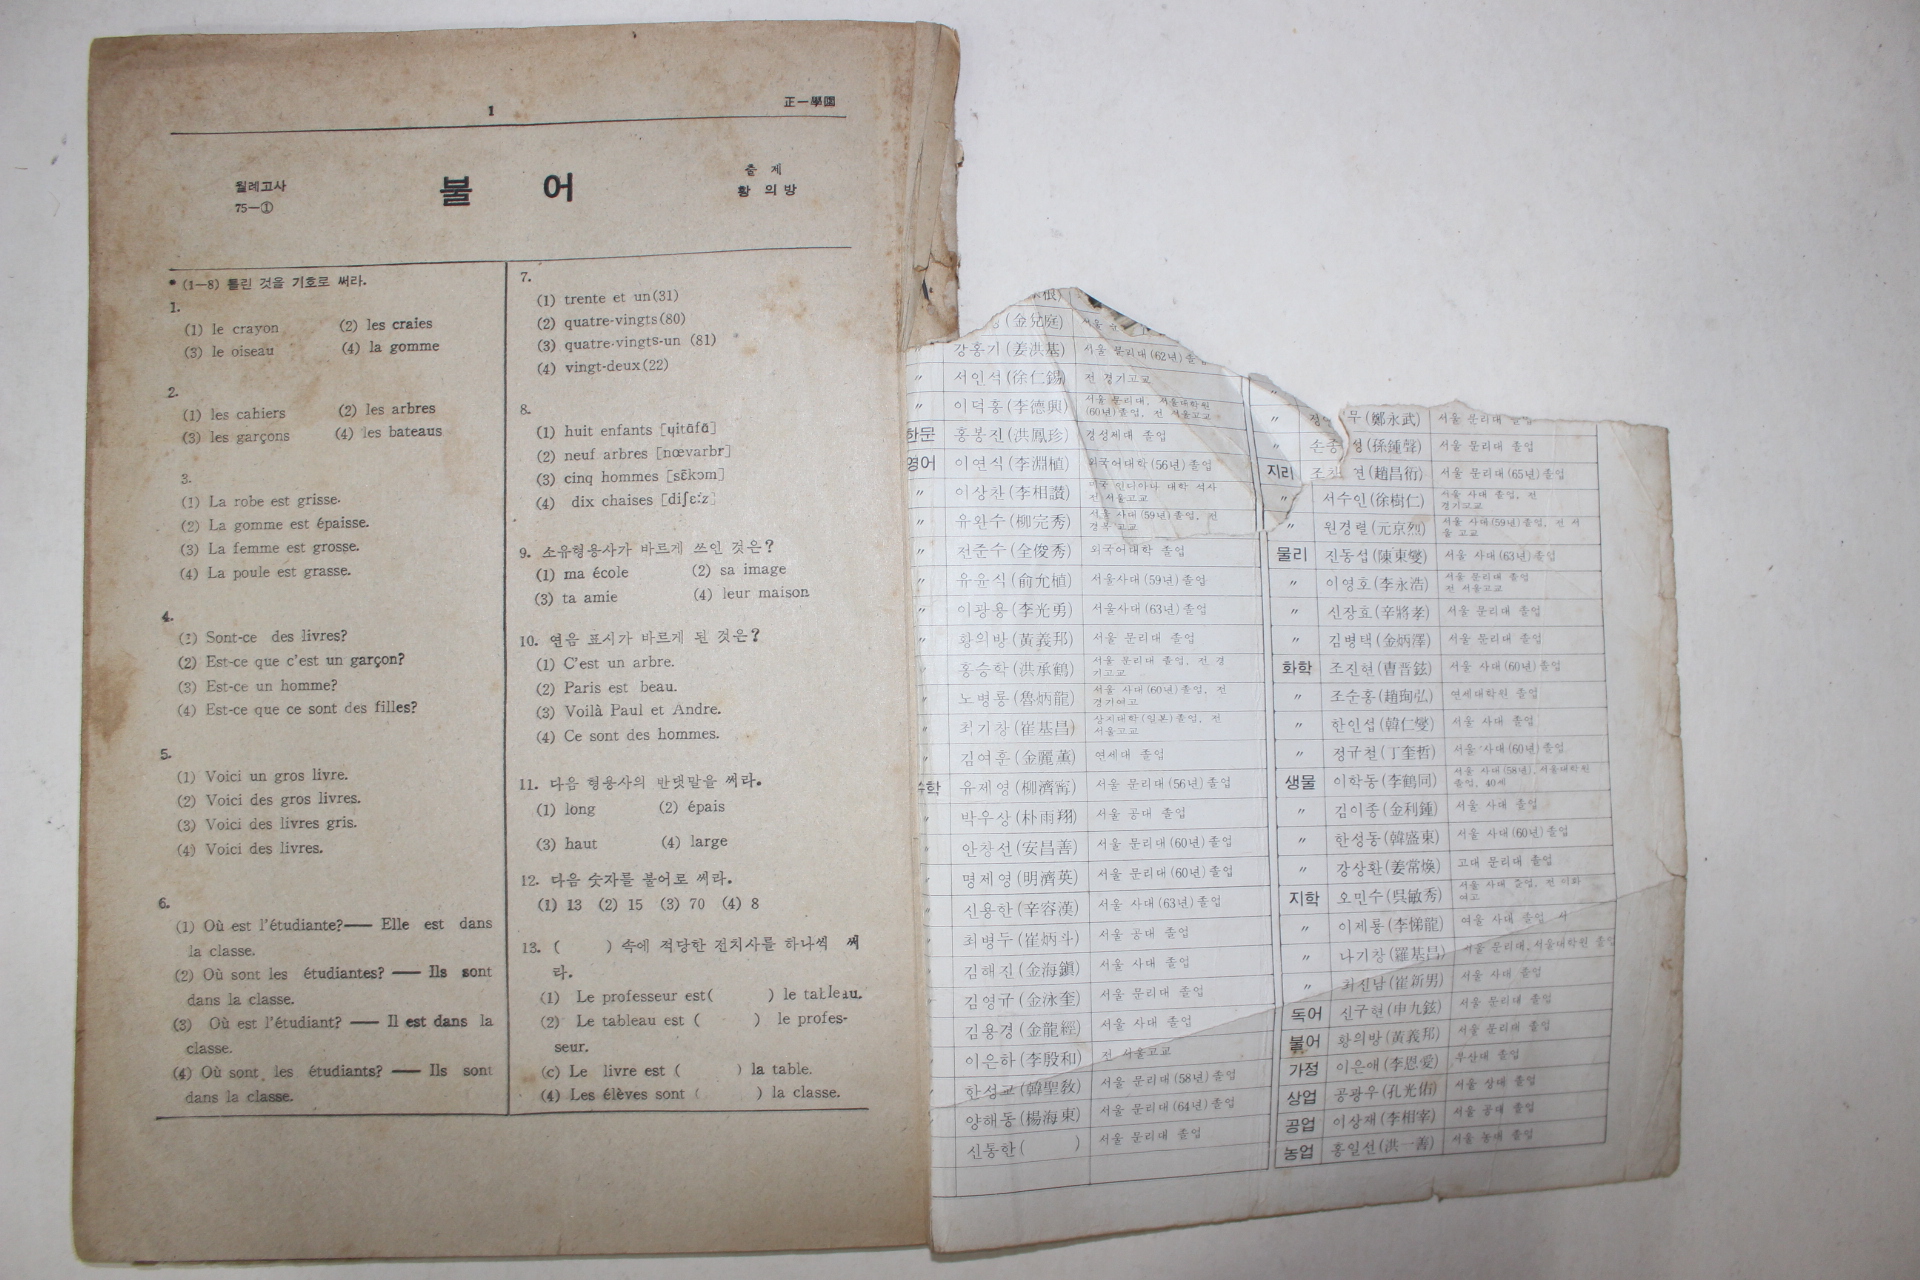 1
正一學園
월례고사
75—①
불 어
출 제
황 의 방
* (1—8) 틀린 것을 기호로 써라.
1.
(1) le crayon (2) les craies
(3) le oiseau (4) la gomme
2.
(1) les cahiers (2) les arbres
(3) les garçons (4) les bateaus
3.
(1) La robe est grisse.
(2) La gomme est épaisse.
(3) La femme est grosse.
(4) La poule est grasse.
4.
(1) Sont-ce des livres?
(2) Est-ce que c'est un garçon?
(3) Est-ce un homme?
(4) Est-ce que ce sont des filles?
5.
(1) Voici un gros livre.
(2) Voici des gros livres.
(3) Voici des livres gris.
(4) Voici des livres.
6.
(1) Où est l'étudiante?— Elle est dans
la classe.
(2) Où sont les étudiantes? — Ils sont
dans la classe.
(3) Où est l'étudiant? — Il est dans la
classe.
(4) Où sont les étudiants? — Ils sont
dans la classe.
7.
(1) trente et un(31)
(2) quatre-vingts(80)
(3) quatre-vingts-un (81)
(4) vingt-deux(22)
8.
(1) huit enfants [ɥitɑ̃fɑ̃]
(2) neuf arbres [nœvarbr]
(3) cinq hommes [sɛ̃kɔm]
(4) dix chaises [diʃɛːz]
9. 소유형용사가 바르게 쓰인 것은?
(1) ma école (2) sa image
(3) ta amie (4) leur maison
10. 연음 표시가 바르게 된 것은?
(1) C'est un arbre.
(2) Paris est beau.
(3) Voilà Paul et Andre.
(4) Ce sont des hommes.
11. 다음 형용사의 반댓말을 써라.
(1) long (2) épais
(3) haut (4) large
12. 다음 숫자를 불어로 써라.
(1) 13 (2) 15 (3) 70 (4) 8
13. ( ) 속에 적당한 전치사를 하나씩 써
라.
(1) Le professeur est( ) le tableau.
(2) Le tableau est ( ) le profes-
seur.
(c) Le livre est ( ) la table.
(4) Les élèves sont ( ) la classe.
(金兌庭)
〃 강홍기(姜洪基) 서울 문리대(62년)졸업
〃 서인석(徐仁錫) 전 경기고교
〃 이덕흥(李德興) 서울 문리대, 서울대학원
(60년)졸업, 전 서울고교
한문 홍봉진(洪鳳珍) 경성제대 졸업
영어 이연식(李淵植) 외국어대학(56년)졸업
〃 이상찬(李相讃) 미국 인디아나 대학 석사
전 서울고교
〃 유완수(柳完秀) 서울 사대(59년)졸업, 전
경복고교
〃 전준수(全俊秀) 외국어대학 졸업
〃 유윤식(兪允植) 서울사대(59년)졸업
〃 이광용(李光勇) 서울사대(63년)졸업
〃 황의방(黃義邦) 서울 문리대 졸업
〃 홍승학(洪承鶴) 서울 문리대 졸업, 전 경
기고교
〃 노병룡(魯炳龍) 서울 사대(60년)졸업, 전
경기여고
〃 최기창(崔基昌) 상지대학(일본)졸업, 전
서울고교
〃 김여훈(金麗薰) 연세대 졸업
수학 유제영(柳濟寗) 서울 문리대(56년)졸업
〃 박우상(朴雨翔) 서울 공대 졸업
〃 안창선(安昌善) 서울 문리대(60년)졸업
〃 명제영(明濟英) 서울 문리대(60년)졸업
〃 신용한(辛容漢) 서울 사대(63년)졸업
〃 최병두(崔炳斗) 서울 공대 졸업
〃 김해진(金海鎭) 서울 사대 졸업
〃 김영규(金泳奎) 서울 문리대 졸업
〃 김용경(金龍經) 서울 사대 졸업
이은하(李殷和) 전 서울고교
〃 한성교(韓聖敎) 서울 문리대(58년)졸업
〃 양해동(楊海東) 서울 문리대(64년)졸업
신통한( ) 서울 문리대 졸업
〃
〃 무(鄭永武) 서울 문리대 졸업
〃 손종성(孫鍾聲) 서울 문리대 졸업
지리 조창연(趙昌衍) 서울 문리대(65년)졸업
〃 서수인(徐樹仁) 서울 사대 졸업, 전
경기고교
〃 원경렬(元京烈) 서울 사대(59년)졸업, 전 서
울 고교
물리 진동섭(陳東燮) 서울 사대(63년)졸업
〃 이영호(李永浩) 서울 문리대 졸업
전 서울고교
〃 신장효(辛將孝) 서울 문리대 졸업
〃 김병택(金炳澤) 서울 문리대 졸업
화학 조진현(曺晋鉉) 서울 사대(60년)졸업
〃 조순홍(趙珣弘) 연세대학원 졸업
〃 한인섭(韓仁燮) 서울 사대 졸업
〃 정규철(丁奎哲) 서울 사대(60년)졸업
생물 이학동(李鶴同) 서울 사대(58년), 서울대학원
졸업, 40세
〃 김이종(金利鍾) 서울 사대 졸업
〃 한성동(韓盛東) 서울 사대(60년)졸업
〃 강상환(姜常煥) 고대 문리대 졸업
지학 오민수(呉敏秀) 서울 사대 졸업, 전 이화
여고
〃 이제룡(李悌龍) 서울 사대 졸업
〃 나기창(羅基昌) 서울 문리대, 서울대학원 졸업
〃 최신남(崔新男) 서울 사대 졸업
독어 신구현(申九鉉) 서울 문리대 졸업
불어 황의방(黃義邦) 서울 문리대 졸업
가정 이은애(李恩愛) 부산대 졸업
상업 공광우(孔光佑) 서울 상대 졸업
공업 이상재(李相宰) 서울 공대 졸업
농업 홍일선(洪一善) 서울 농대 졸업